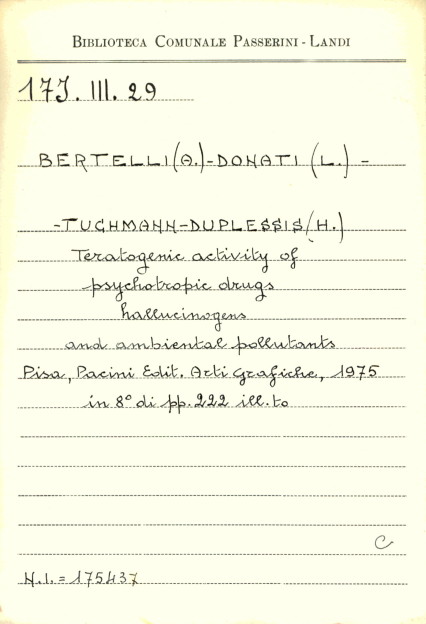 BIBLIOTECA COMUNALE PASSERINI - LANDI
17J. III. 29
BERTELLI (A.) - DONATI (L.) -
- TUCHMANN-DUPLESSIS (H.)
Teratogenic activity of
psychotropic drugs
hallucinogens
and ambiental pollutants
Pisa, Pacini Edit. Arti Grafiche, 1975
in 8° di pp. 222 ill.to
C
N.I. = 175437